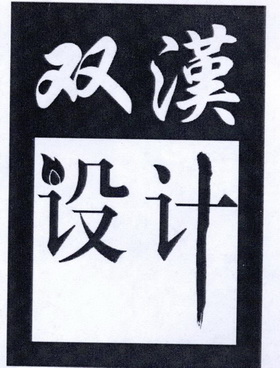 双漢
设计